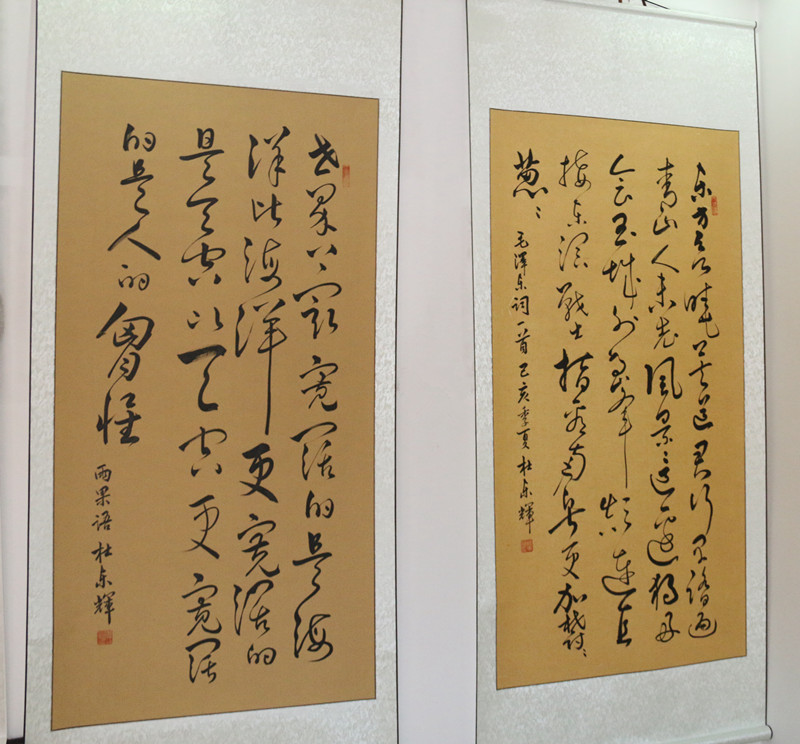 东方欲晓莫道君行早踏遍
青山人未老风景这边独好
会昌城外高峰颠连直
接东溟战士指看南粤更加郁郁
葱葱
毛泽东词一首 己亥季夏 杜东輝
世界上最宽阔的是海
洋比海洋更宽阔的
是天空比天空更宽阔
的是人的胸怀
雨果语 杜东輝